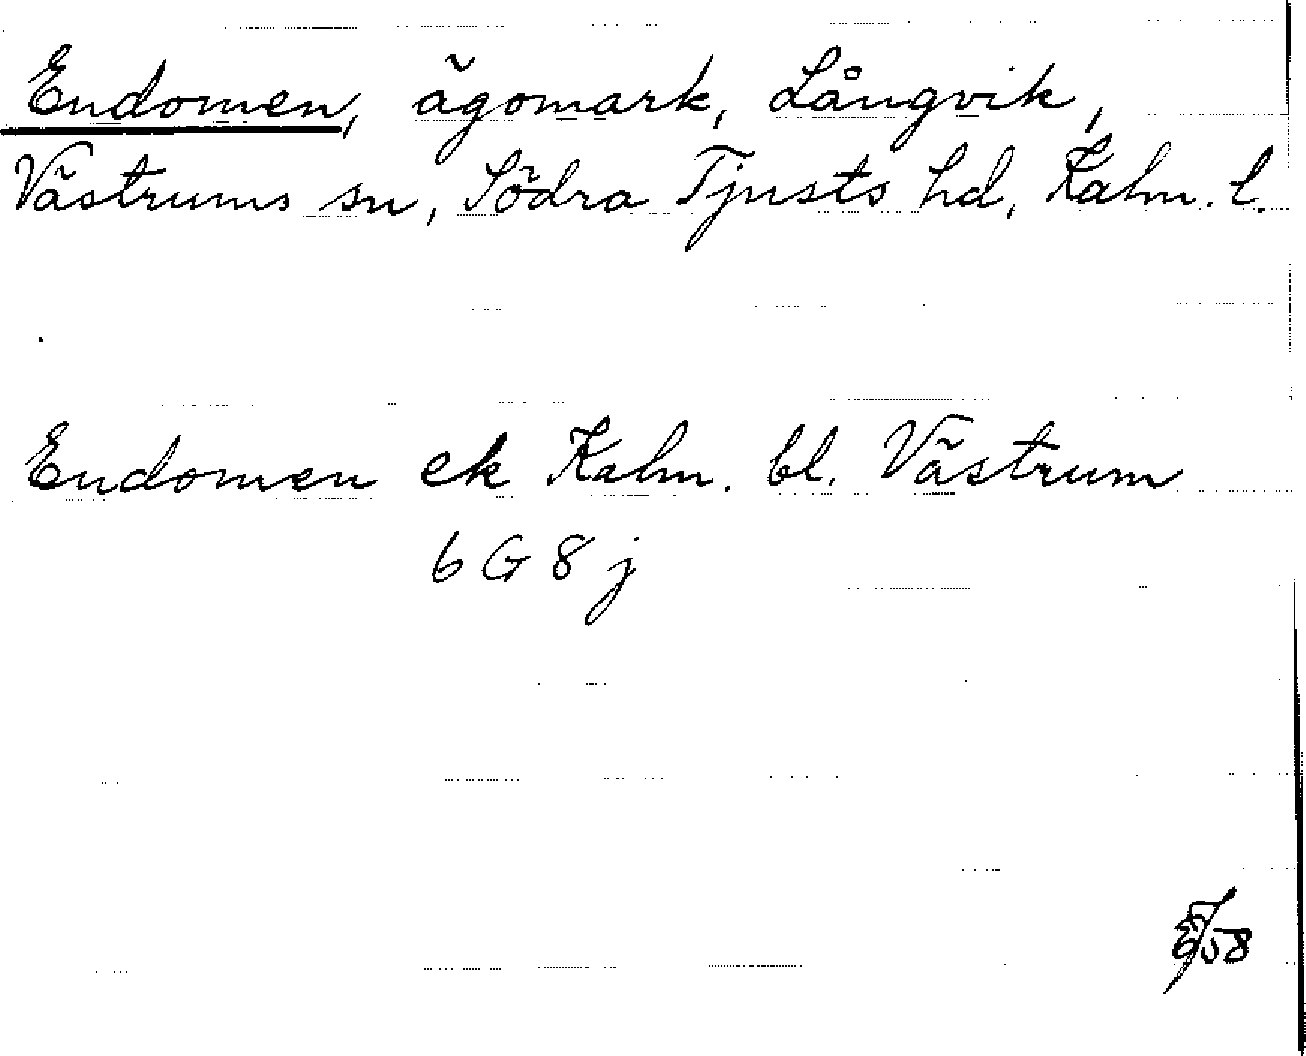 Endomen, ägomark, Långvik,
Västrums sn, Södra Tjusts hd, Kalm. l.
Endomen ek Kalm. bl. Västrum
6 G 8 j